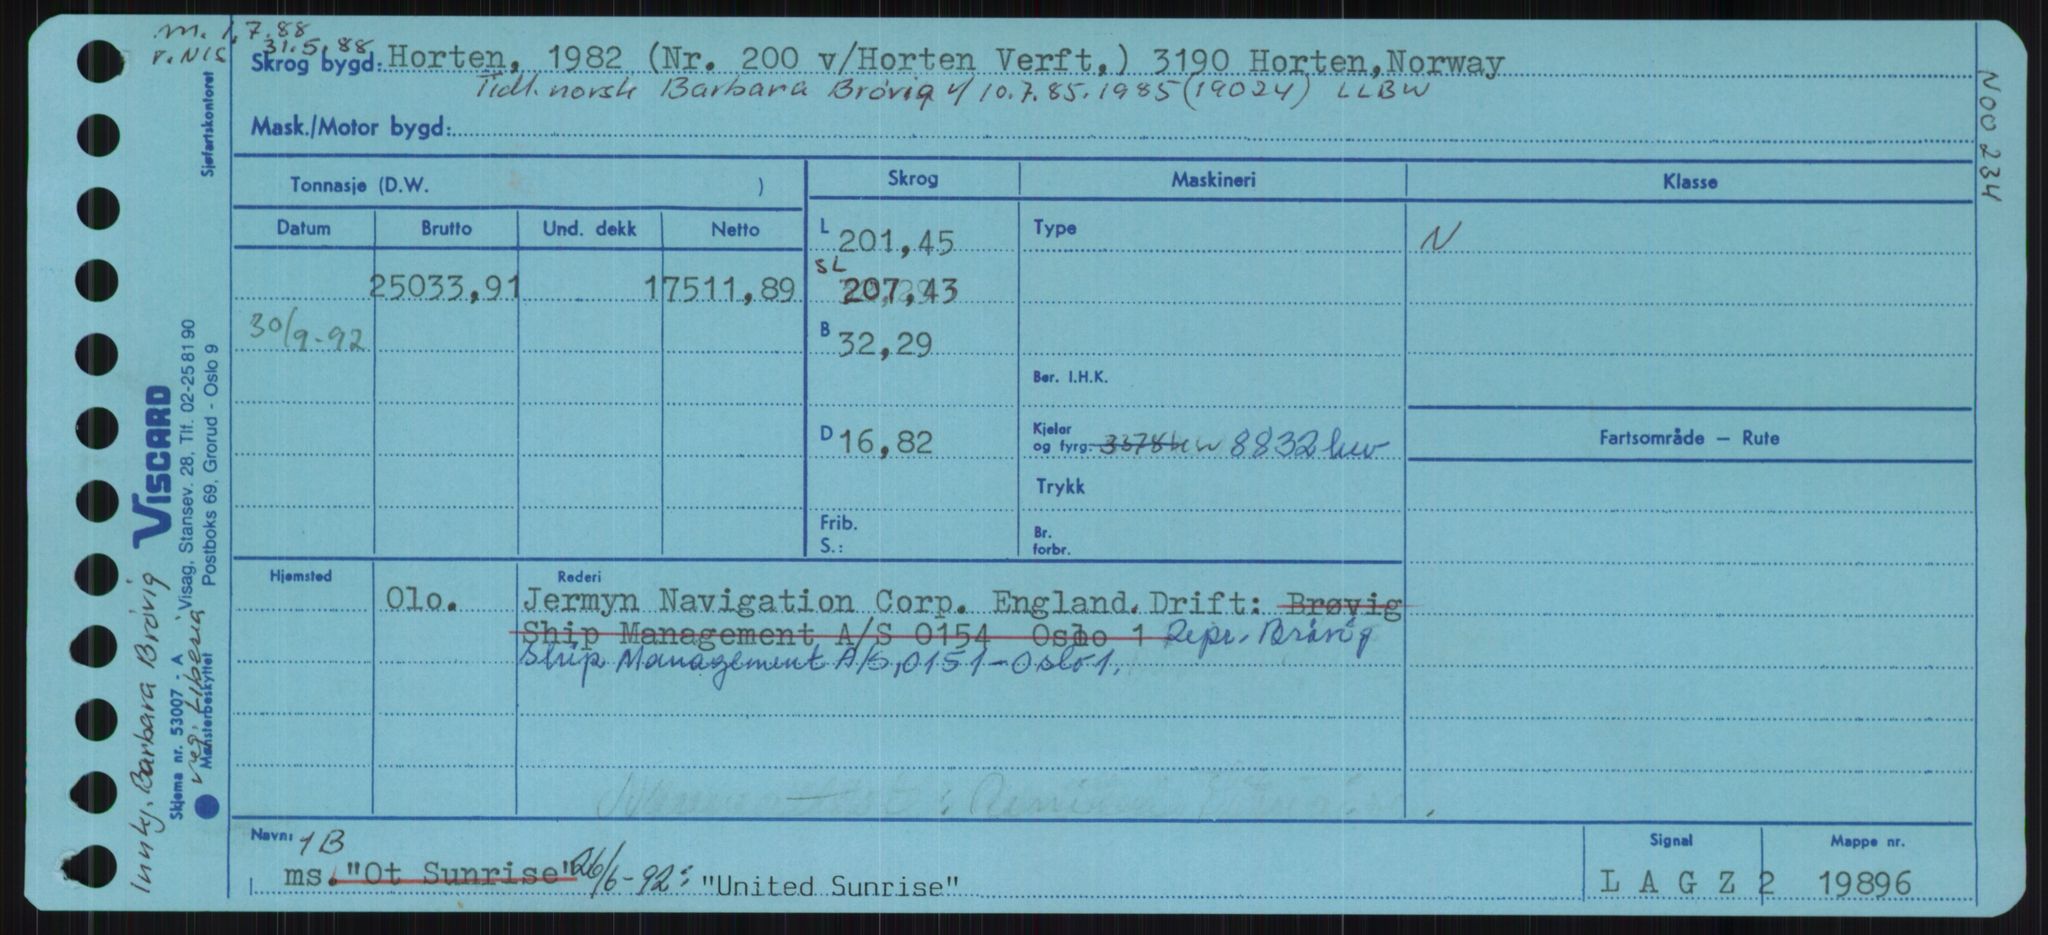 m. 1.7.88
r. NIS 31.5.88
Skrog bygd: Horten, 1982 (Nr. 200 v/Horten Verft,) 3190 Horten,Norway
Tidl. norsk Barbara Brövig 1/ 10.7.85. 1985 (19024) LLBW
Mask./Motor bygd:
Sjøfartskontoret
N00 234
Tonnasje (D.W. )
Skrog Maskineri Klasse
Datum Brutto Und. dekk Netto
L 201,45
Type
N
25033,91 17511,89
SL 207,43
30/9-92
B 32,29
Ber. I.H.K.
D 16,82
Kjeler og fyrg. 3378kw 8832 kw
Fartsområde — Rute
Trykk
Frib.
S.:
Br. forbr.
Hjemsted Rederi
Olo. Jermyn Navigation Corp. England. Drift: Brøvig
Ship Management A/S 0154 Oslo 1 Repr. Brövig
Ship Management A/S, 0151 - Oslo 1.
Navn: 1B
ms. "Ot Sunrise" 26/6-92: "United Sunrise"
Signal
L A G Z 2
Mappe nr.
19896
VISCARD
Visag, Stansev. 28, Tlf. 02-25 81 90
Postboks 69, Grorud - Oslo 9
Skjema nr. 53007 - A
Mønsterbeskyttet
Innlej. Barbara Brövig
reg. Liberia